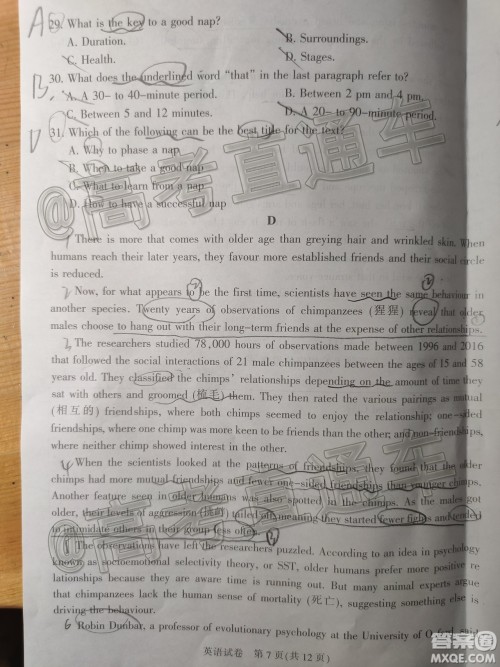 A
29. What is the key to a good nap?
A. Duration.
B. Surroundings.
C. Health.
D. Stages.
B
30. What does the underlined word "that" in the last paragraph refer to?
A. A 30- to 40-minute period.
B. Between 2 pm and 4 pm.
C. Between 5 and 12 minutes.
D. A 20- to 90-minute period.
D
31. Which of the following can be the best title for the text?
A. Why to phase a nap
B. When to take a good nap
C. What to learn from a nap
D. How to have a successful nap
D
There is more that comes with older age than greying hair and wrinkled skin. When
humans reach their later years, they favour more established friends and their social circle
is reduced.
Now, for what appears to be the first time, scientists have seen the same behaviour in
another species. Twenty years of observations of chimpanzees (猩猩) reveal that older
males choose to hang out with their long-term friends at the expense of other relationships.
The researchers studied 78,000 hours of observations made between 1996 and 2016
that followed the social interactions of 21 male chimpanzees between the ages of 15 and 58
years old. They classified the chimps' relationships depending on the amount of time they
sat with others and groomed (梳毛) them. They then rated the various pairings as mutual
(相互的) friendships, where both chimps seemed to enjoy the relationship; one-sided
friendships, where one chimp was more keen to be friends than the other; and non-friendships,
where neither chimp showed interest in the other.
When the scientists looked at the patterns of friendships, they found that the older
chimps had more mutual friendships and fewer one-sided friendships than younger chimps.
Another feature seen in older humans was also spotted in the chimps. As the males got
older, their levels of aggression tailed off, meaning they started fewer fights and tended
to intimidate others in their group less often.
The observations have left the researchers puzzled. According to an idea in psychology
known as socioemotional selectivity theory, or SST, older humans prefer more positive re
lationships because they are aware time is running out. But many animal experts argue
that chimpanzees lack the human sense of mortality (死亡), suggesting something else is
driving the behaviour.
6 Robin Dunbar, a professor of evolutionary psychology at the University of Oxford,
英语试卷 第 7 页(共 12 页)
@高考直通车
@高考直通车
答案圈
MXQE.COM